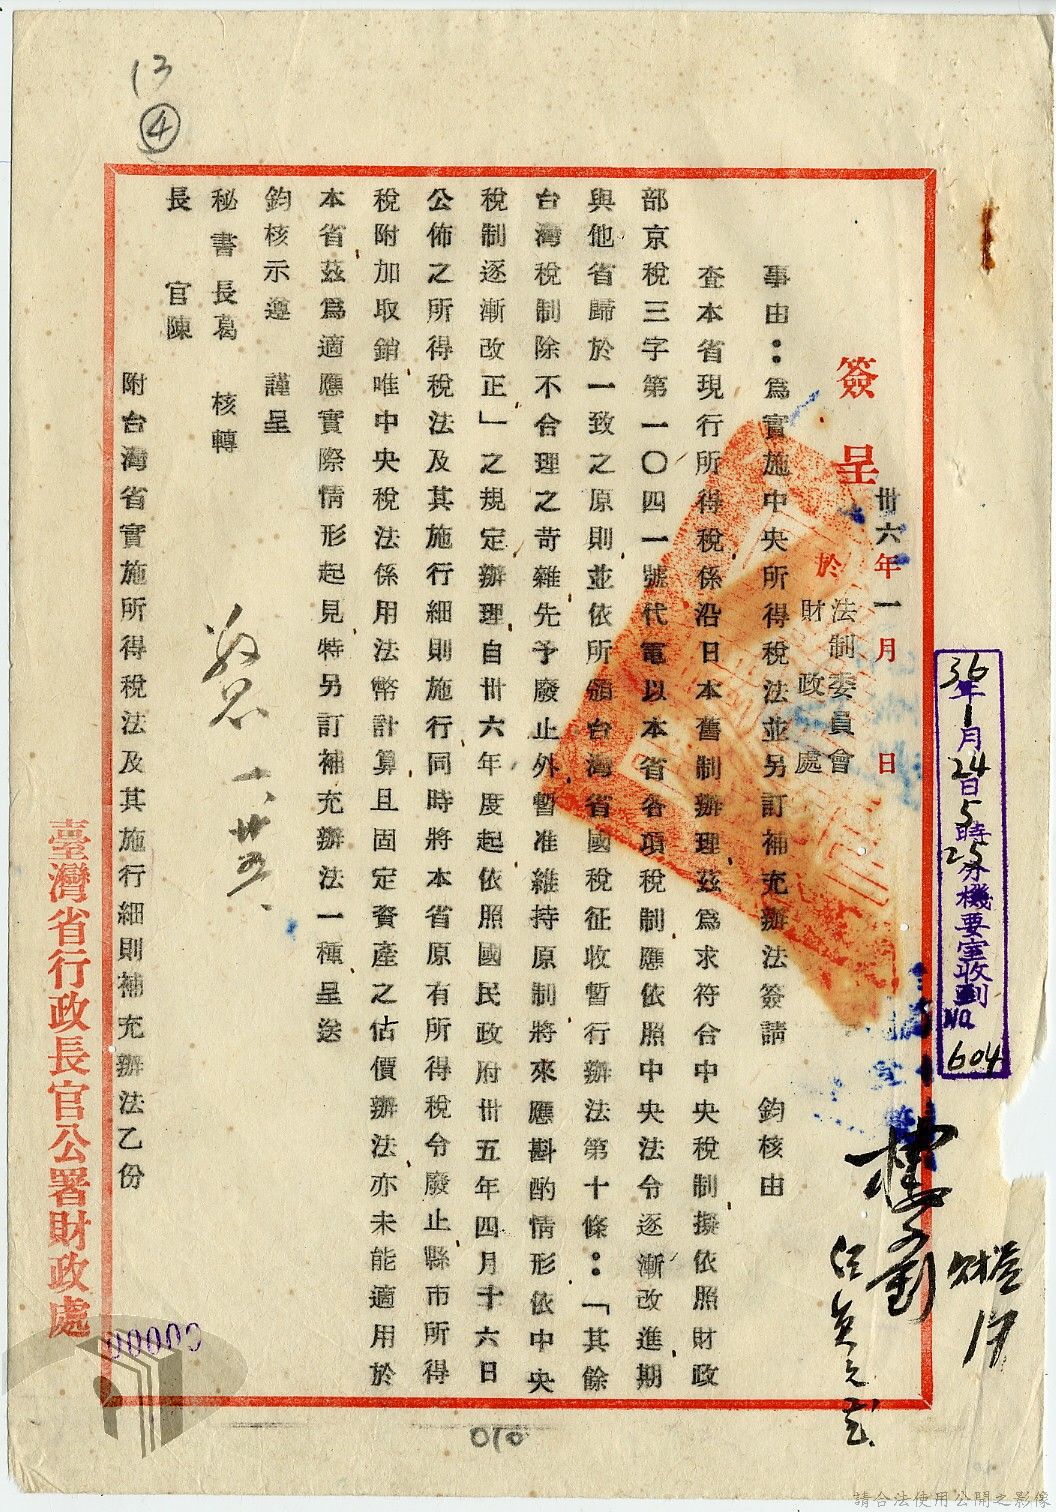 13
4
簽呈
卅六年一月 日
於 法制委員會
財政處
事由：為實施中央所得稅法並另訂補充辦法簽請 鈞核由
查本省現行所得稅係沿日本舊制辦理茲為求符合中央稅制擬依照財政
部京稅三字第一〇四一號代電以本省各項稅制應依照中央法令逐漸改進期
與他省歸於一致之原則並依所頒台灣省國稅征收暫行辦法第十條：「其餘
台灣稅制除不合理之苛雜先予廢止外暫准維持原制將來應斟酌情形依中央
稅制逐漸改正」之規定辦理自卅六年度起依照國民政府卅五年四月十六日
公佈之所得稅法及其施行細則施行同時將本省原有所得稅令廢止縣市所得
稅附加取銷唯中央稅法係用法幣計算且固定資產之估價辦法亦未能適用於
本省茲為適應實際情形起見特另訂補充辦法一種呈送
鈞核示遵 謹呈
秘書長葛 核轉
長官陳
附台灣省實施所得稅法及其施行細則補充辦法乙份
臺灣省行政長官公署財政處
36年1月24日5時25分機要室收到
No 604
00000
010
請合法使用公開之影像